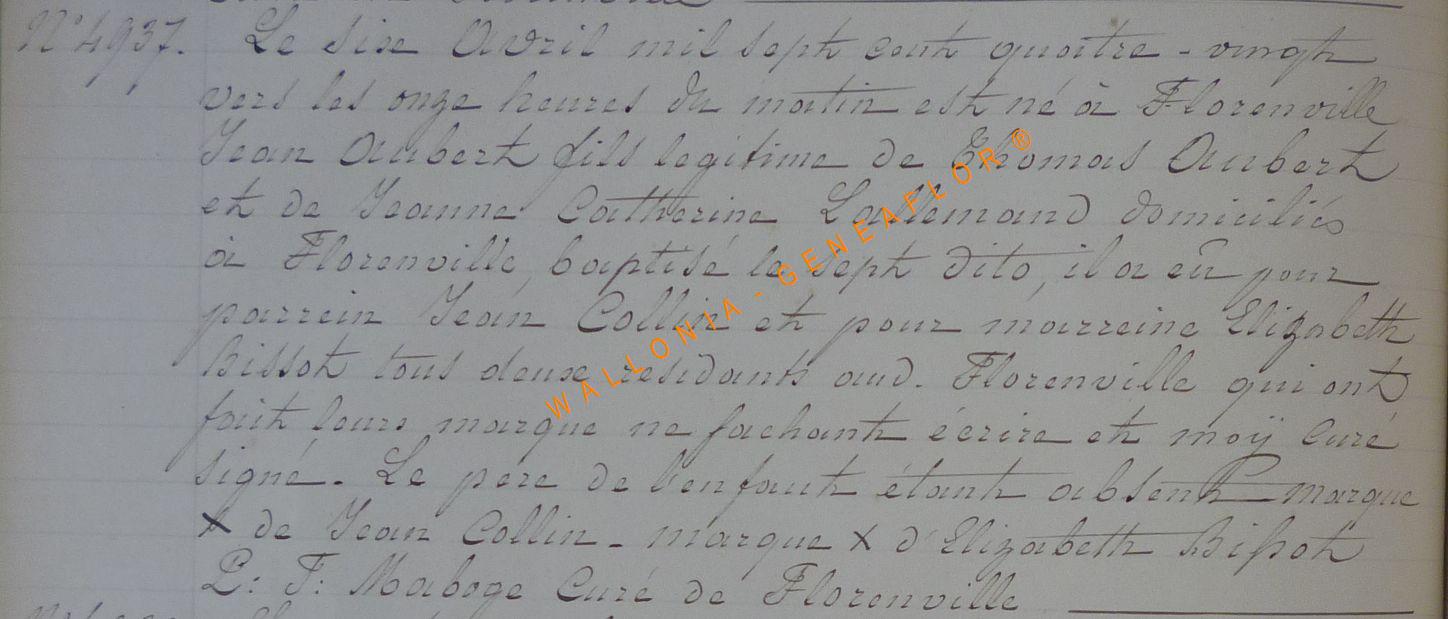 N° 4937. Le Six Avril mil sept cent quatre-vingt
vers les onze heures du matin est né à Florenville
Jean Aubert fils legitime de Thomas Aubert
et de Jeanne Catherine Lallemand domiciliés
à Florenville, baptisé le sept dito, il a eû pour
parrein Jean Collin et pour marreine Elizabeth
Bissot tous deux residants aud. Florenville qui ont
fait leurs marque ne sachant écrire et moÿ Curé
signé. Le père de l'enfant étant absent marque
x de Jean Collin - marque x d'Elizabeth Bissot
P: F: Maboge Curé de Florenville
WALLONIA - GENEAFLOR ®